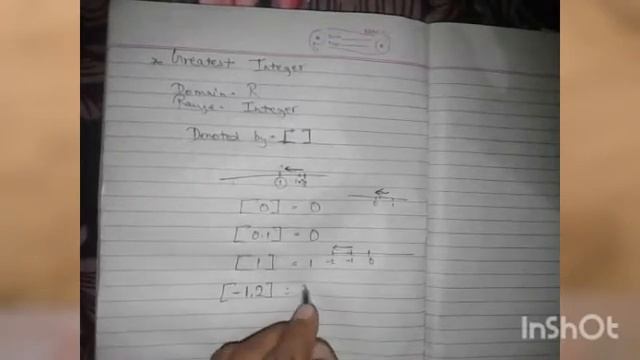 Greatest Integer
Domain = R
Range = Integer
Denoted by = [ ]
1
[0] = 0
0 1
[0.1] = 0
[1] = 1
-2 -1 0
[-1.2] =
InShOt